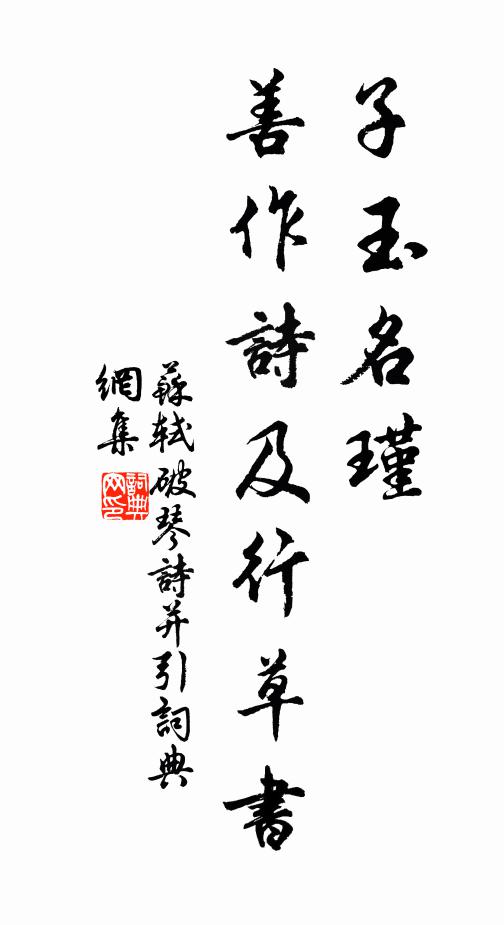 子玉名瑾
善作詩及行草書
蘇軾破琴詩并引詞典
網集
詞典
网印